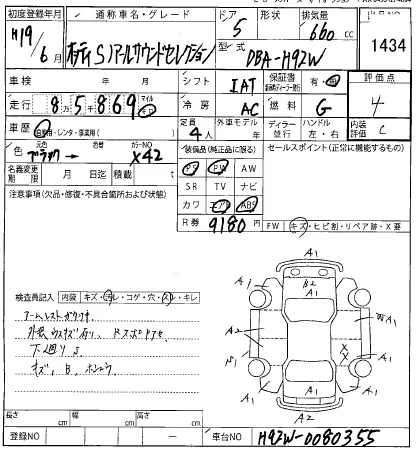 初度登録年月 通称車名・グレード ドア 形状 排気量
H19/6月 Sアールサウンドセレクション 5 660 cc 1434
型式 DBA-H92W
車検 年 月 シフト IAT 保証書 有・無 評価点
走行 8 5,869 マイル 冷房 AC 燃料 G 4
車歴 自家用・レンタ・事業用( ) 定員 4人 外車モデル 年 ディーラー 並行 ハンドル 左・右 内装評価 C
色 元色 ブラック → 色替 カラーNO X42 装備品(純正品に限る) セールスポイント(正常に機能するもの)
名義変更期限 月 日迄 積載 t PS PW AW
注意事項(欠品・修復・不具合箇所および状態) SR TV ナビ
カワ エアB ABS
R券 9180円 FW キズ・ヒビ割・リペア跡・X要
A1
A1 B2 A1 A1
A2 A1 A1
A1 X X A1
A1 A1 A1
A2
検査員記入 内装 キズ・汚レ・コゲ・穴・スレ・キレ
下廻り S
キズ, B,
長さ cm 幅 cm 高さ cm
登録NO — 車台NO H92W-0080355